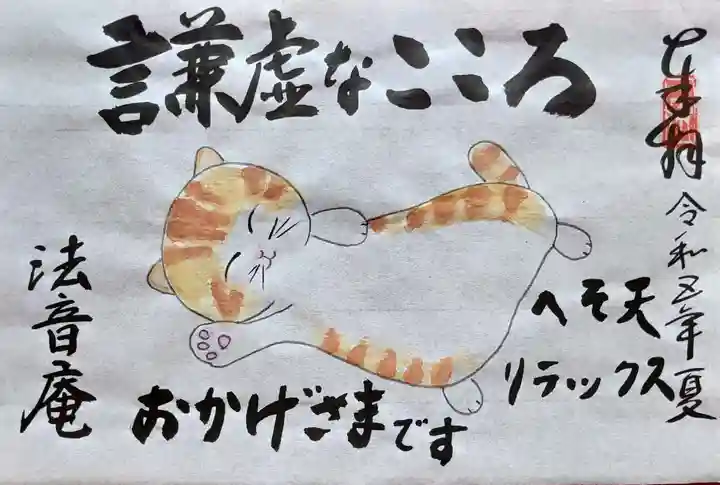 謙虚なこころ
奉拝
令和五年夏
へそ天
リラックス
おかげさまです
法音庵